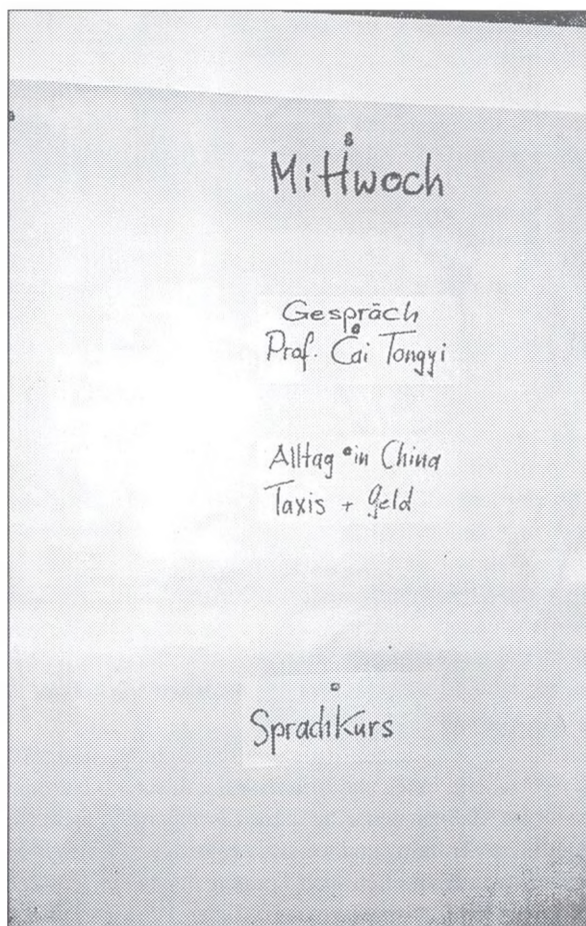 Mittwoch
Gespräch
Prof. Cai Tongyi
Alltag in China
Taxis + Geld
Sprachkurs